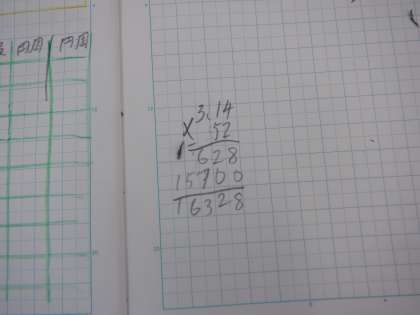 円周 円周
3.14
× 52
628
15700
16328